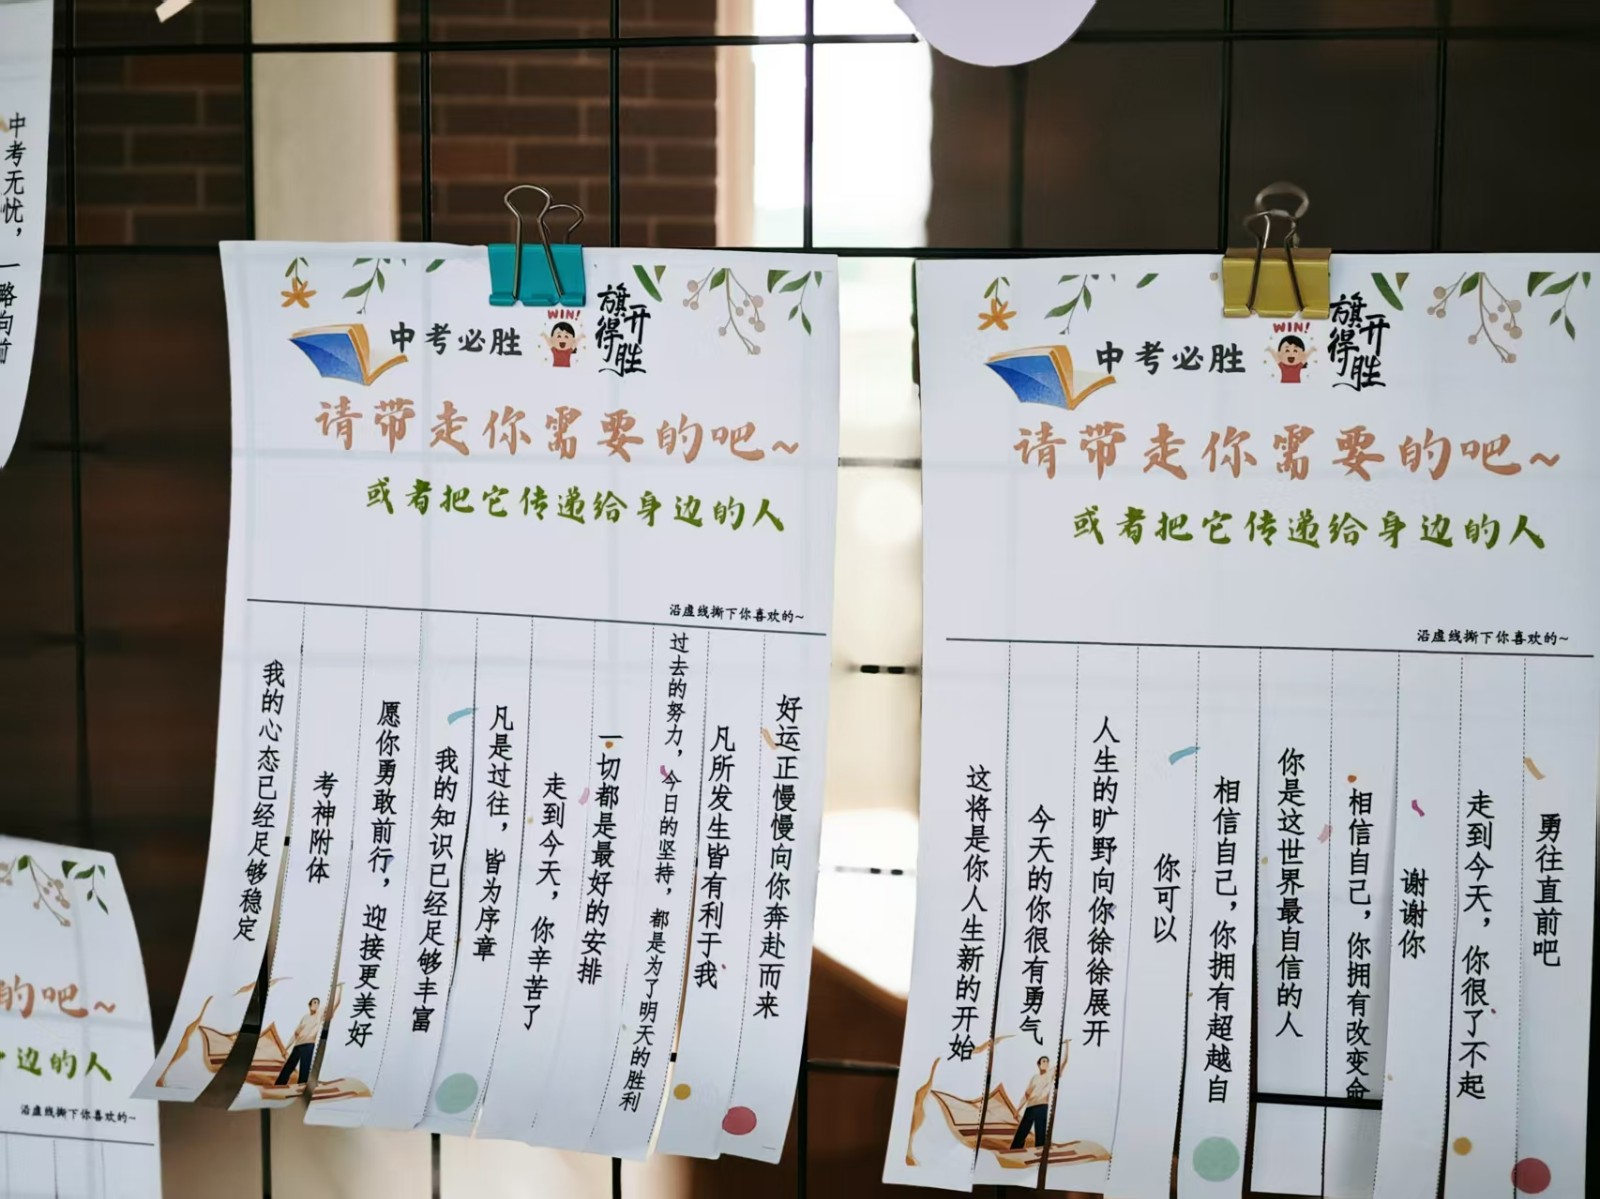 中考无忧，一路向前
中考必胜
WIN!
旗开得胜
请带走你需要的吧~
或者把它传递给身边的人
沿虚线撕下你喜欢的~
我的心态已经足够稳定
考神附体
愿你勇敢前行，迎接更美好
我的知识已经足够丰富
凡是过往，皆为序章
走到今天，你辛苦了
一切都是最好的安排
过去的努力，今日的坚持，都是为了明天的胜利
凡所发生皆有利于我
好运正慢慢向你奔赴而来
中考必胜
WIN!
旗开得胜
请带走你需要的吧~
或者把它传递给身边的人
沿虚线撕下你喜欢的~
这将是你人生新的开始
今天的你很有勇气
人生的旷野向你徐徐展开
你可以
相信自己，你拥有超越自
你是这世界最自信的人
相信自己，你拥有改变命
谢谢你
走到今天，你很了不起
勇往直前吧
的吧~
身边的人
沿虚线撕下你喜欢的~